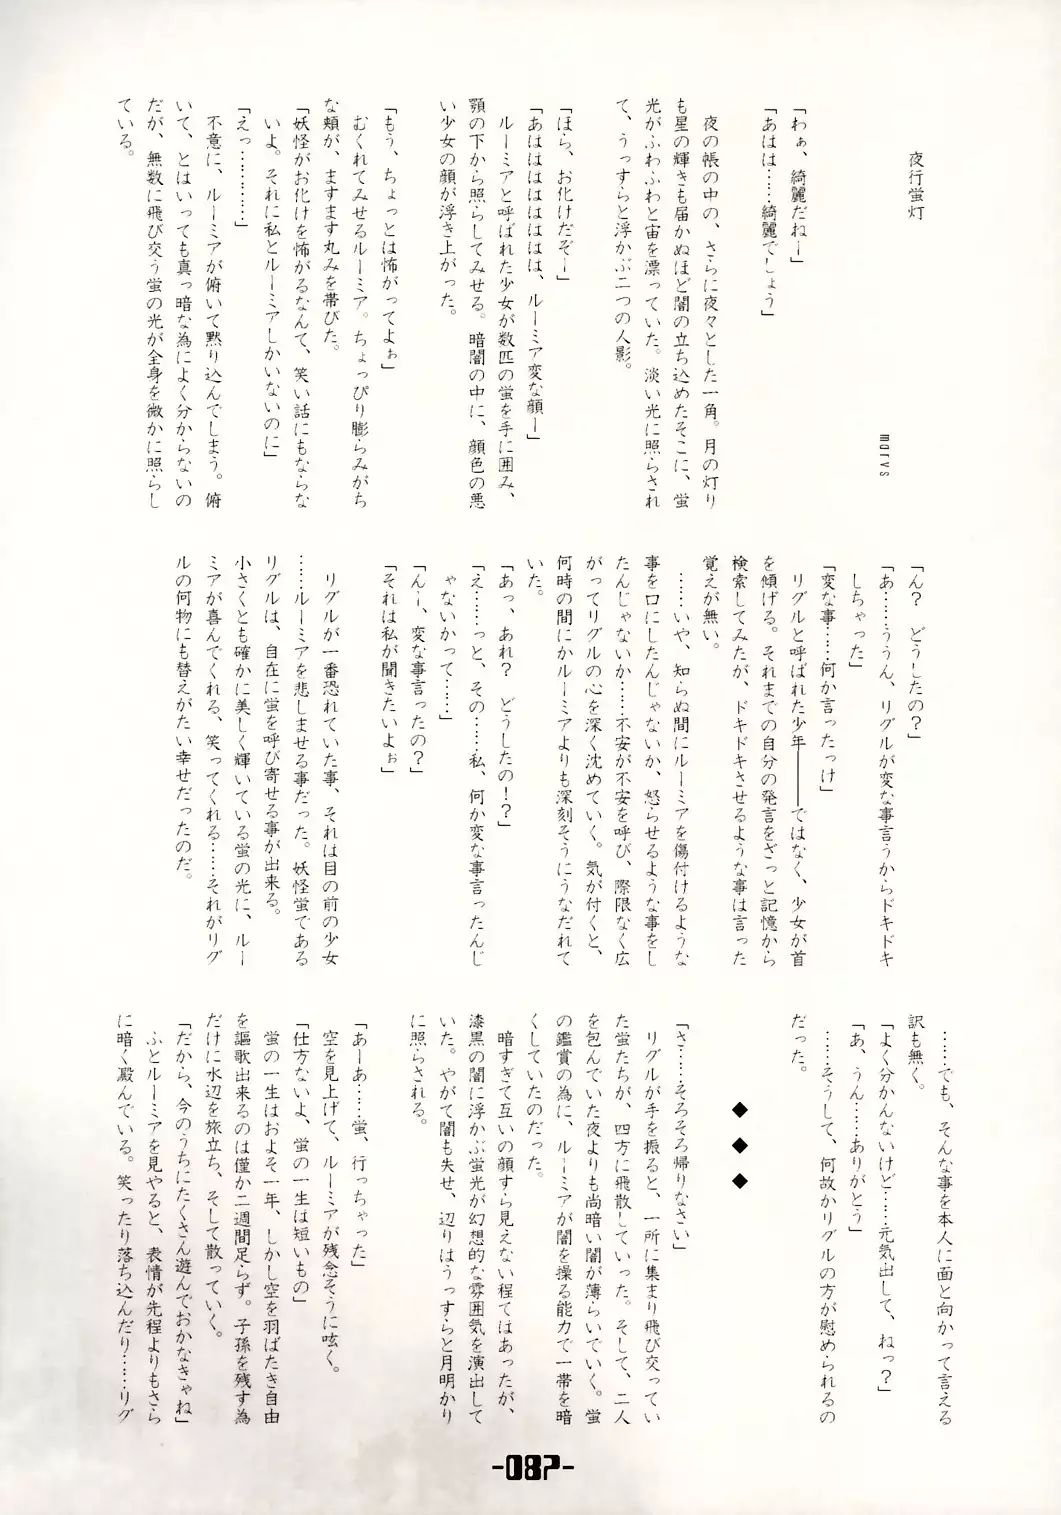 夜行蛍灯
marvs
「わぁ、綺麗だねー」
「あはは……綺麗でしょう」
夜の帳の中の、さらに夜々とした一角。月の灯り
も星の輝きも届かぬほど闇の立ち込めたそこに、蛍
光がふわふわと宙を漂っていた。淡い光に照らされ
て、うっすらと浮かぶ二つの人影。
「ほら、お化けだぞー」
「あはははははははは、ルーミア変な顔ー」
ルーミアと呼ばれた少女が数匹の蛍を手に囲み、
顎の下から照らしてみせる。暗闇の中に、顔色の悪
い少女の顔が浮き上がった。
「もぅ、ちょっとは怖がってよぉ」
むくれてみせるルーミア。ちょっぴり膨らみがち
な頬が、ますます丸みを帯びた。
「妖怪がお化けを怖がるなんて、笑い話にもならな
いよ。それに私とルーミアしかいないのに」
「えっ…………」
不意に、ルーミアが俯いて黙り込んでしまう。俯
いて、とはいっても真っ暗な為によく分からないの
だが、無数に飛び交う蛍の光が全身を微かに照らし
ている。
「ん？　どうしたの？」
「あ……ううん、リグルが変な事言うからドキドキ
しちゃった」
「変な事……何か言ったっけ」
リグルと呼ばれた少年――ではなく、少女が首
を傾げる。それまでの自分の発言をざっと記憶から
検索してみたが、ドキドキさせるような事は言った
覚えが無い。
……いや、知らぬ間にルーミアを傷付けるような
事を口にしたんじゃないか、怒らせるような事をし
たんじゃないか……不安が不安を呼び、際限なく広
がってリグルの心を深く沈めていく。気が付くと、
何時の間にかルーミアよりも深刻そうにうなだれて
いた。
「あっ、あれ？　どうしたの！？」
「え……っと、その……私、何か変な事言ったんじ
ゃないかって……」
「んー、変な事言ったの？」
「それは私が聞きたいよぉ」
リグルが一番恐れていた事、それは目の前の少女
……ルーミアを悲しませる事だった。妖怪蛍である
リグルは、自在に蛍を呼び寄せる事が出来る。
小さくとも確かに美しく輝いている蛍の光に、ルー
ミアが喜んでくれる、笑ってくれる……それがリグ
ルの何物にも替えがたい幸せだったのだ。
……でも、そんな事を本人に面と向かって言える
訳も無く。
「よく分かんないけど……元気出して、ねっ？」
「あ、うん……ありがとう」
……そうして、何故かリグルの方が慰められるの
だった。
◆　◆　◆
「さ……そろそろ帰りなさい」
リグルが手を振ると、一所に集まり飛び交ってい
た蛍たちが、四方に飛散していった。そして、二人
を包んでいた夜よりも尚暗い闇が薄らいでいく。蛍
の鑑賞の為に、ルーミアが闇を操る能力で一帯を暗
くしていたのだった。
暗すぎて互いの顔すら見えない程ではあったが、
漆黒の闇に浮かぶ蛍光が幻想的な雰囲気を演出して
いた。やがて闇も失せ、辺りはうっすらと月明かり
に照らされる。
「あーあ……蛍、行っちゃった」
空を見上げて、ルーミアが残念そうに呟く。
「仕方ないよ、蛍の一生は短いもの」
蛍の一生はおよそ一年、しかし空を羽ばたき自由
を謳歌出来るのは僅か二週間足らず。子孫を残す為
だけに水辺を旅立ち、そして散っていく。
「だから、今のうちにたくさん遊んでおかなきゃね」
ふとルーミアを見やると、表情が先程よりもさら
に暗く澱んでいる。笑ったり落ち込んだり……リグ
-087-